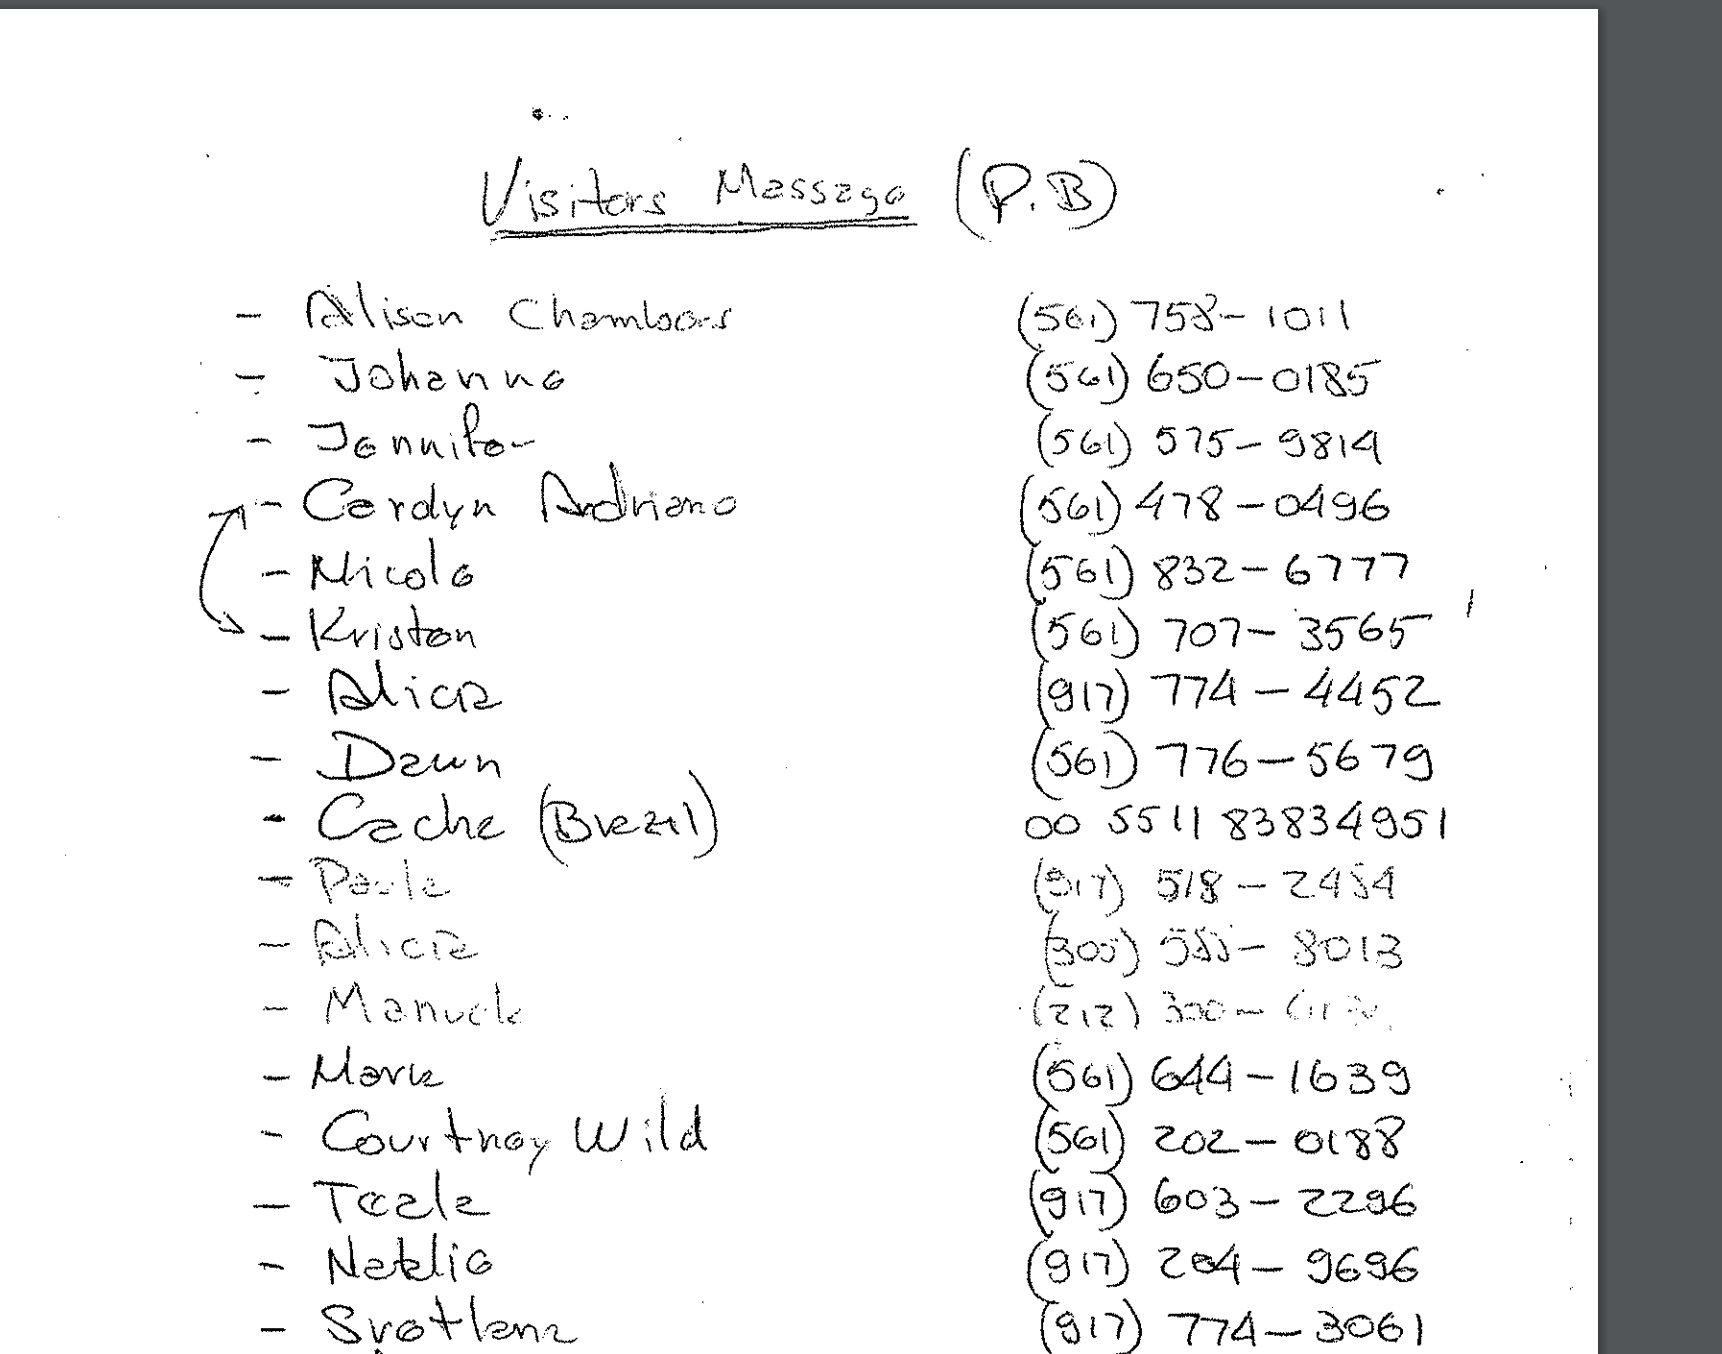 Visitors Massage (P.B)
- Alison Chambers (561) 758-1011
- Johanna (561) 650-0185
- Jennifer (561) 575-9814
- Carolyn Andriano (561) 478-0496
- Nicole (561) 832-6777
- Kristen (561) 707-3565
- Alicia (917) 774-4452
- Dawn (561) 776-5679
- Cache (Brazil) 00 5511 83834951
- Paula (917) 518-
- Alicia (305) -8013
- Manuela (212) 300-
- Maria (561) 644-1639
- Courtney Wild (561) 202-0188
- Teala (917) 603-2296
- Natalia (917) 204-9696
- Svetlana (917) 774-3061